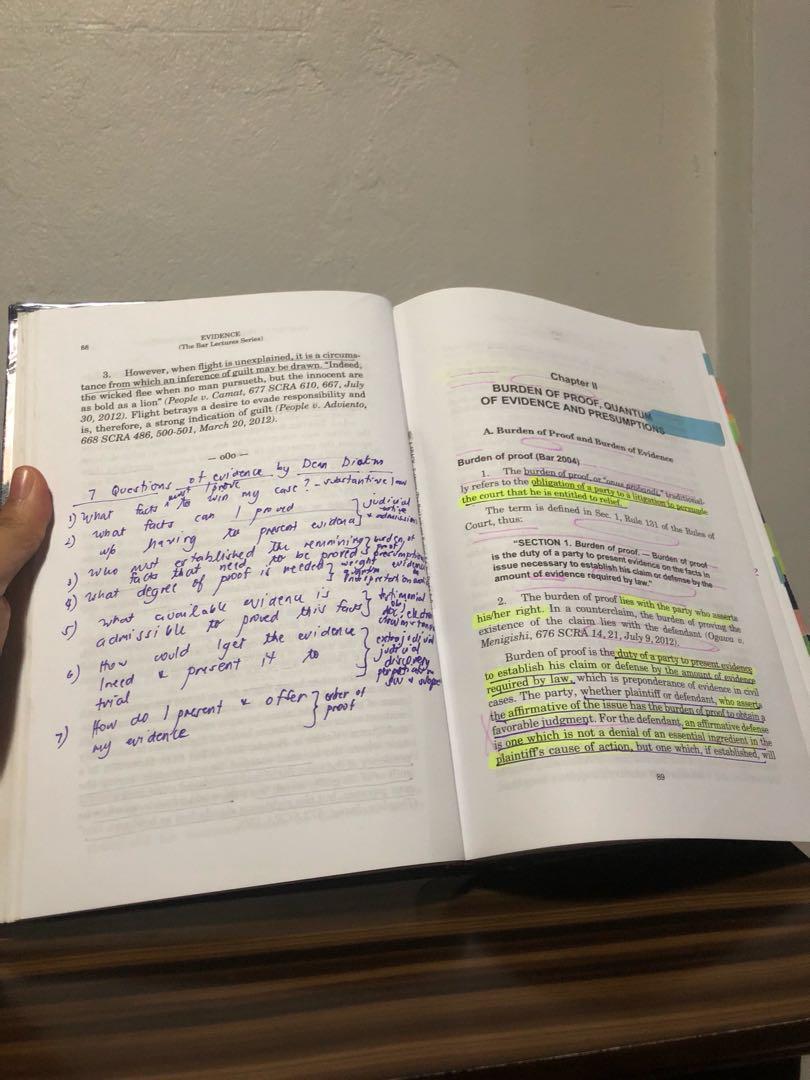 88
EVIDENCE
(The Bar Lectures Series)
3. However, when flight is unexplained, it is a circums-
tance from which an inference of guilt may be drawn. "Indeed,
the wicked flee when no man pursueth, but the innocent are
as bold as a lion" (People v. Camat, 677 SCRA 610, 667, July
30, 2012). Flight betrays a desire to evade responsibility and
is, therefore, a strong indication of guilt (People v. Adviento,
668 SCRA 486, 500-501, March 20, 2012).
— o0o —
7 Questions of evidence by Dean
1) What facts must I prove to win my case? - substantive law
2) What facts can I proved judicial
w/o having to present evidence & admission
3) Who must established the remmining burden of proof
facts that need to be proved presumption
4) What degree of proof is needed weight
5) what available evidence is testimonial
admissible to proved this facts obj
6) How could I get the evidence extrajudicial
I need & present it to judicial
trial discovery
7) How do I present & offer order of
my evidence proof
Chapter II
BURDEN OF PROOF, QUANTUM
OF EVIDENCE AND PRESUMPTIONS
A. Burden of Proof and Burden of Evidence
Burden of proof (Bar 2004)
1. The burden of proof, or "onus probandi," traditional-
ly refers to the obligation of a party to a litigation to persuade
the court that he is entitled to relief.
The term is defined in Sec. 1, Rule 131 of the Rules of
Court, thus:
"SECTION 1. Burden of proof. — Burden of proof
is the duty of a party to present evidence on the facts in
issue necessary to establish his claim or defense by the
amount of evidence required by law."
2. The burden of proof lies with the party who asserts
his/her right. In a counterclaim, the burden of proving the
existence of the claim lies with the defendant (Ogawa v.
Menigishi, 676 SCRA 14, 21, July 9, 2012).
Burden of proof is the duty of a party to present evidence
to establish his claim or defense by the amount of evidence
required by law, which is preponderance of evidence in civil
cases. The party, whether plaintiff or defendant, who asserts
the affirmative of the issue has the burden of proof to obtain a
favorable judgment. For the defendant, an affirmative defense
is one which is not a denial of an essential ingredient in the
plaintiff's cause of action, but one which, if established, will
89